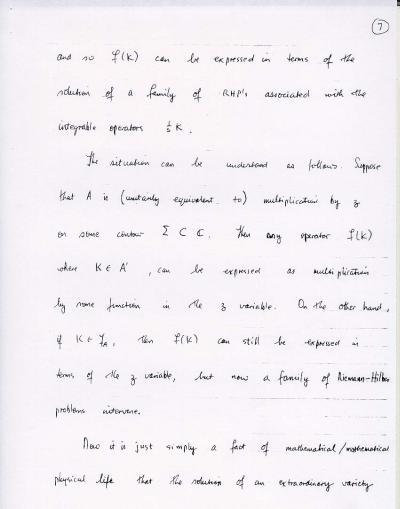 7
and so f(K) can be expressed in terms of the
solution of a family of RHP's associated with the
integrable operators K.
The situation can be understood as follows. Suppose
that A is (unitarily equivalent to) multiplication by z
on some contour Σ ⊂ ℂ. Then any operator f(K)
where K ∈ A', can be expressed as multiplication
by some function in the z variable. On the other hand,
if K ∈ , then f(K) can still be expressed in
terms of the z variable, but now a family of Riemann-Hilber
problems intervene.
Now it is just simply a fact of mathematical/mathematical
physical life that the solution of an extraordinary variety